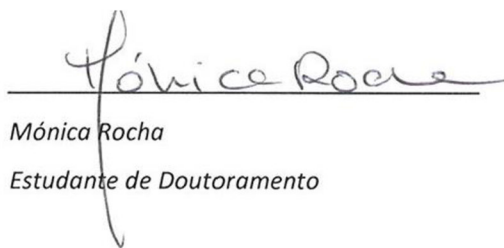 Mónica Rocha
Mónica Rocha
Estudante de Doutoramento